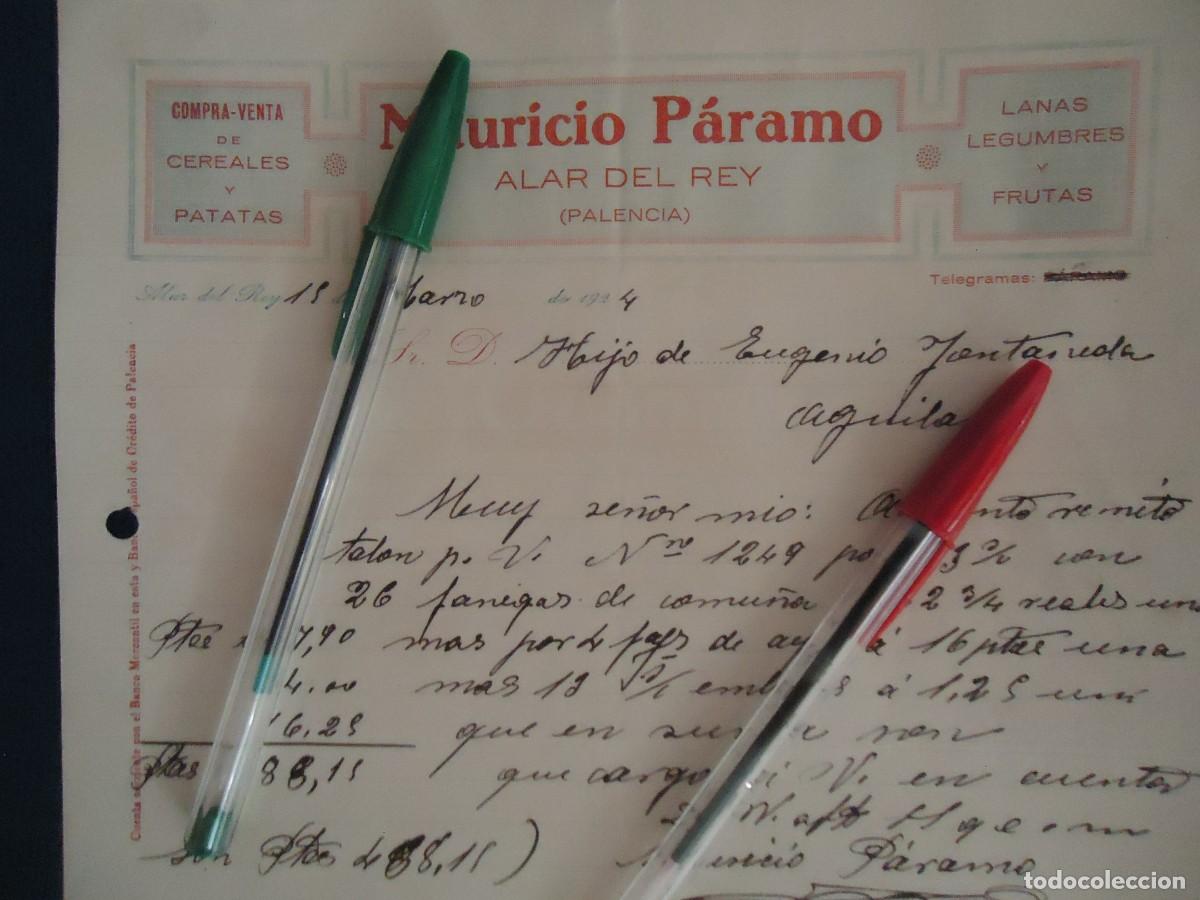 COMPRA-VENTA
DE
CEREALES
Y
PATATAS
Mauricio Páramo
ALAR DEL REY
(PALENCIA)
LANAS
LEGUMBRES
Y
FRUTAS
Telegramas: PÁRAMO
Alar del Rey 15 de Marzo de 1924
Sr. D. Hijo de Eugenio Fontaneda
Aguila
Muy señor mio: remito
talon p. V. Nro 1249 3 s/ con
26 fanegas de comuña 2 3/4 reales una
Ptas 7,90 mas por 4 fags de á 16 ptas una
4.00 mas 13 s/ á 1,25 uno
6,25 que en suma son
Ptas 88,15 que cargo V. en cuenta
son Ptas 488,15) Mauricio Páramo
Cuenta corriente con el Banco Mercantil en esta y Banco Español de Crédito de Palencia
todocoleccion